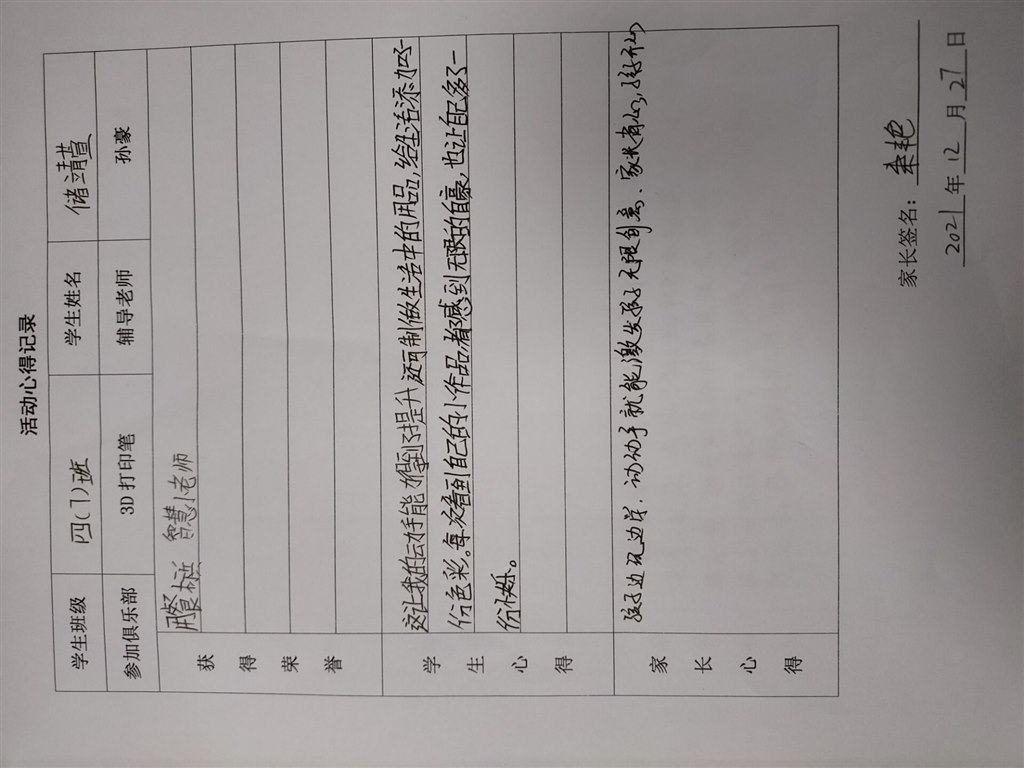 活动心得记录
学生班级 四(1)班 学生姓名 储靖萱
参加俱乐部 3D打印笔 辅导老师 孙豪
获得荣誉
智慧小老师
学生心得
这让我的动手能力得到了提升还可制做生活中的用品,给生活添加了一
份色彩。每次看到自己的小作品都感到无限的自豪,也让自己多了一
份
家长心得
孩子边玩边学,动动手就能激发孩子无限创意、家长省心,孩子开心
家长签名:
2021年12月27日